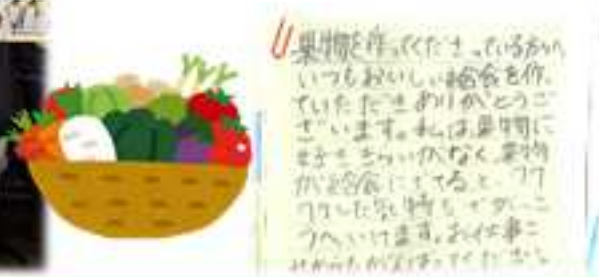 果物を作ってくださっている方々へ
いつもおいしい給食を作っ
ていただきありがとうご
ざいます。私は果物に
好ききらいがなく果物
が給食にでてると、ワク
ワクした気持ちで
へいけます。お仕事
がんばってください